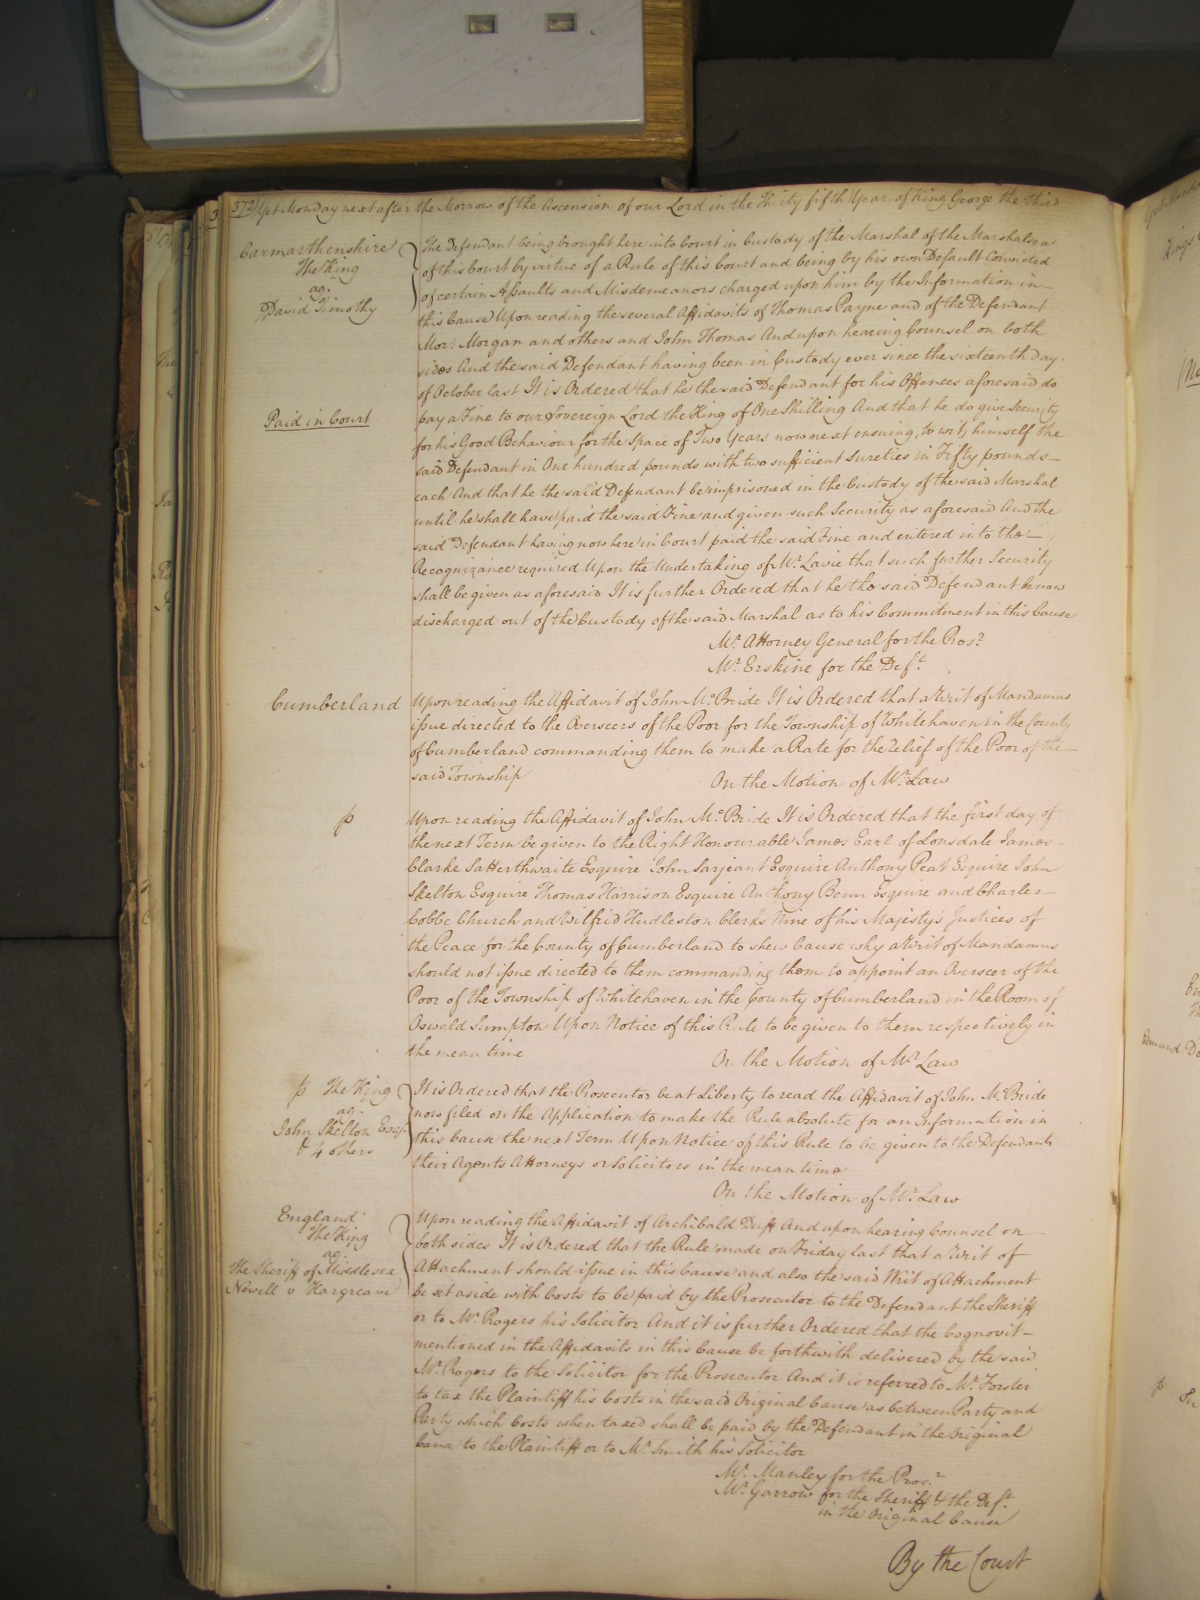 372 Yet Monday next after the Morrow of the Ascension of our Lord in the Thirty fifth Year of King George the third
Carmarthenshire
The King
ag.
David Timothy
The Defendant being brought here into Court in Custody of the Marshal of the Marshalsea
of this Court by virtue of a Rule of this Court and being by his own Default Convicted
of certain Assaults and Misdemeanors charged upon him by the Information in
this Cause Upon reading the several Affidavits of Thomas Payne and of the Defendant
Mor: Morgan and others and John Thomas And upon hearing Counsel on both
sides And the said Defendant having been in Custody ever since the sixteenth day
of October last It is Ordered that he the said Defendant for his Offences aforesaid do
Paid in Court
pay a Fine to our Sovereign Lord the King of One Shilling And that he do give Security
for his Good Behaviour for the Space of Two Years now next ensuing, to wit, himself the
said Defendant in One hundred pounds with two sufficient Sureties in Fifty pounds
each And that he the said Defendant be imprisoned in the Custody of the said Marshal
until he shall have paid the said Fine and given such Security as aforesaid And the
said Defendant having now here in Court paid the said Fine and entered into the
Recognizance required Upon the Undertaking of Mr. Lavie that such further Security
shall be given as aforesaid It is further Ordered that he the said Defendant be now
discharged out of the Custody of the said Marshal as to his Commitment in this Cause
Mr. Attorney General for the Pros.r
Mr. Erskine for the Def.t
Cumberland
Upon reading the Affidavit of John Mc.Bride It is Ordered that a Writ of Mandamus
issue directed to the Overseers of the Poor for the Township of Whitehaven in the County
of Cumberland commanding them to make a Rate for the Relief of the Poor of the
said Township
On the Motion of Mr. Law
þ
Upon reading the Affidavit of John Mc.Bride It is Ordered that the first day of
the next Term be given to the Right Honourable James Earl of Lonsdale James
Clarke Satterthwaite Esquire John Sarjeant Esquire Anthony Peat Esquire John
Skelton Esquire Thomas Harrison Esquire Anthony Benn Esquire and Charles
Cobbe Church and Wilfrid Hudleston Clerks Nine of his Majesty's Justices of
the Peace for the County of Cumberland to shew Cause why a Writ of Mandamus
should not issue directed to them commanding them to appoint an Overseer of the
Poor of the Township of Whitehaven in the County of Cumberland in the Room of
Oswald Sumpton Upon Notice of this Rule to be given to them respectively in
the mean time
On the Motion of Mr. Law
þ The King
ag.
John Skelton Esq.
& 4 others
It is Ordered that the Prosecutor be at Liberty to read the Affidavit of John Mc.Bride
now filed on the Application to make the Rule absolute for an Information in
this Cause the next Term Upon Notice of this Rule to be given to the Defendants
their Agents Attorneys or Solicitors in the mean time
On the Motion of Mr. Law
England
The King
ag.
The Sheriff of Middlesex
Nowell v Hargreave
Upon reading the Affidavit of Archibald Duff And upon hearing Counsel on
both sides It is Ordered that the Rule made on Friday last that a Writ of
Attachment should issue in this Cause and also the said Writ of Attachment
be set aside with Costs to be paid by the Prosecutor to the Defendant the Sheriff
or to Mr. Rogers his Solicitor And it is further Ordered that the Cognovit
mentioned in the Affidavits in this Cause be forthwith delivered by the said
Mr. Rogers to the Solicitor for the Prosecutor And it is referred to Mr. Forster
to tax the Plaintiff his Costs in the said Original Cause as between Party and
Party which Costs when taxed shall be paid by the Defendant in the Original
Cause to the Plaintiff or to Mr. Smith his Solicitor
Mr. Manley for the Pros.r
Mr. Garrow for the Sheriff & the Def.t
in the Original Cause
By the Court